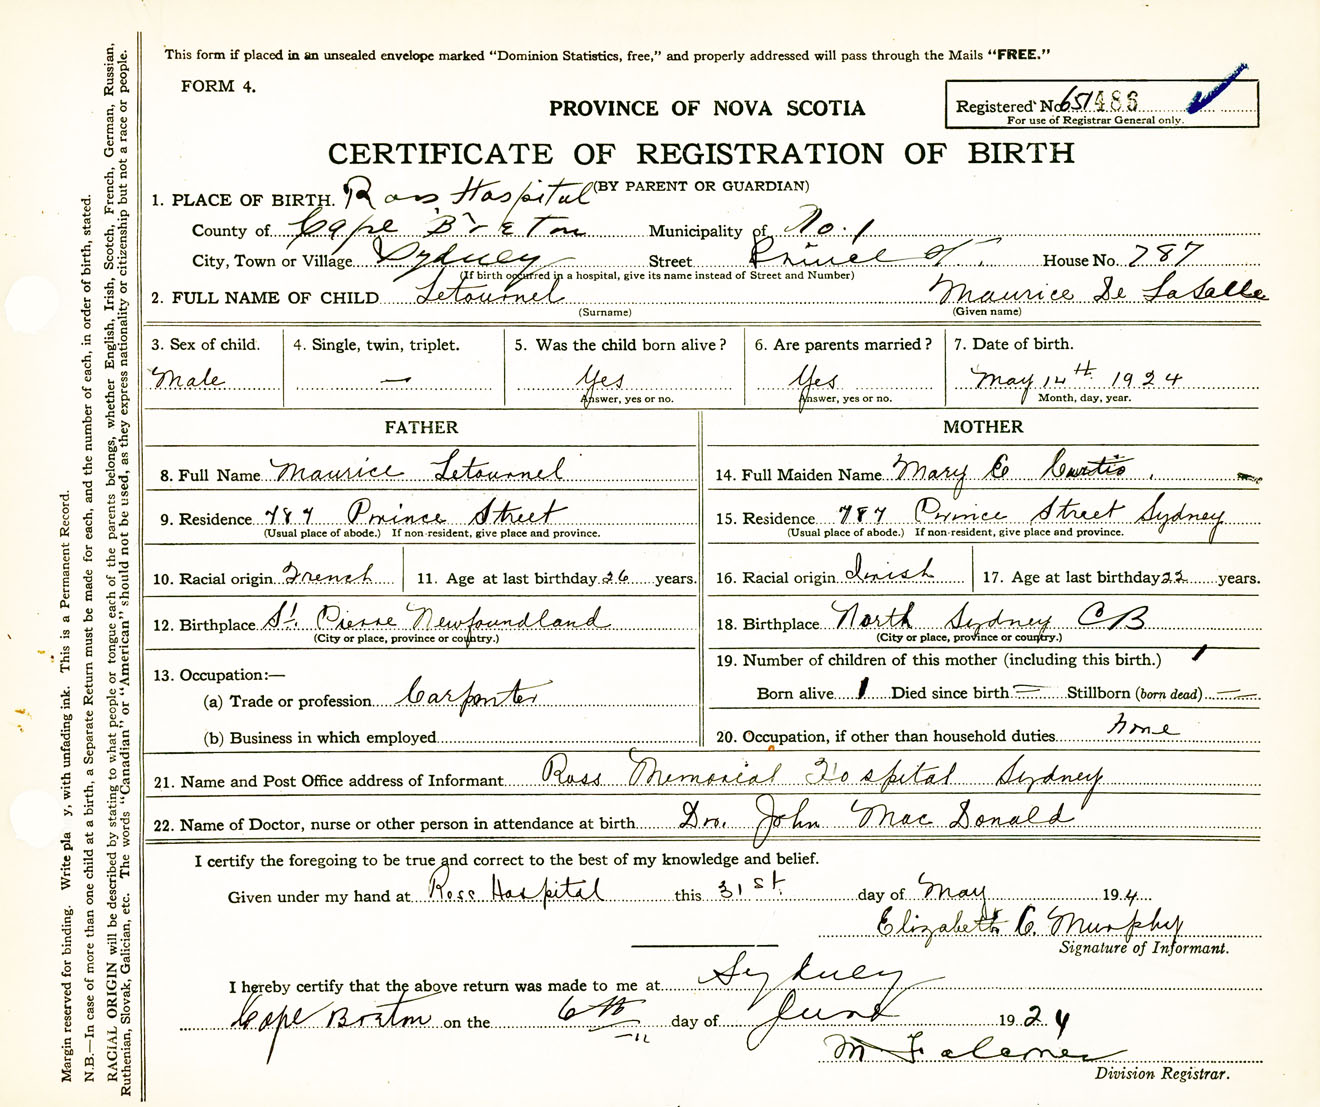 This form if placed in an unsealed envelope marked "Dominion Statistics, free," and properly addressed will pass through the Mails "FREE."
FORM 4.
PROVINCE OF NOVA SCOTIA
Registered No. 651486
For use of Registrar General only.
CERTIFICATE OF REGISTRATION OF BIRTH
(BY PARENT OR GUARDIAN)
1. PLACE OF BIRTH. Ross Hospital
County of Cape Breton Municipality of No. 1
City, Town or Village Sydney Street Prince St. House No. 787
(If birth occurred in a hospital, give its name instead of Street and Number)
2. FULL NAME OF CHILD Letournel Maurice De LaSalle
(Surname) (Given name)
3. Sex of child. 4. Single, twin, triplet. 5. Was the child born alive? 6. Are parents married? 7. Date of birth.
Male — Yes Yes May 14th 1924
Answer, yes or no. Answer, yes or no. Month, day, year.
FATHER MOTHER
8. Full Name Maurice Letournel 14. Full Maiden Name Mary E Curtis
9. Residence 787 Prince Street 15. Residence 787 Prince Street Sydney
(Usual place of abode.) If non-resident, give place and province. (Usual place of abode.) If non-resident, give place and province.
10. Racial origin French 11. Age at last birthday 26 years. 16. Racial origin Irish 17. Age at last birthday 22 years.
12. Birthplace St. Pierre Newfoundland 18. Birthplace North Sydney CB
(City or place, province or country.) (City or place, province or country.)
13. Occupation:— 19. Number of children of this mother (including this birth.) 1
(a) Trade or profession Carpenter Born alive 1 Died since birth — Stillborn (born dead) —
(b) Business in which employed 20. Occupation, if other than household duties None
21. Name and Post Office address of Informant Ross Memorial Hospital Sydney
22. Name of Doctor, nurse or other person in attendance at birth Dr. John Mac Donald
I certify the foregoing to be true and correct to the best of my knowledge and belief.
Given under my hand at Ross Hospital this 31st. day of May 194
Elizabeth C. Murphy
Signature of Informant.
I hereby certify that the above return was made to me at Sydney
Cape Breton on the 6th day of June 1924
M F
Division Registrar.
Margin reserved for binding. Write pla y, with unfading ink. This is a Permanent Record.
N.B.—In case of more than one child at a birth, a Separate Return must be made for each, and the number of each, in order of birth, stated.
RACIAL ORIGIN will be described by stating to what people or tongue each of the parents belongs, whether English, Irish, Scotch, French, German, Russian,
Ruthenian, Slovak, Galician, etc. The words "Canadian" or "American" should not be used, as they express nationality or citizenship but not a race or people.